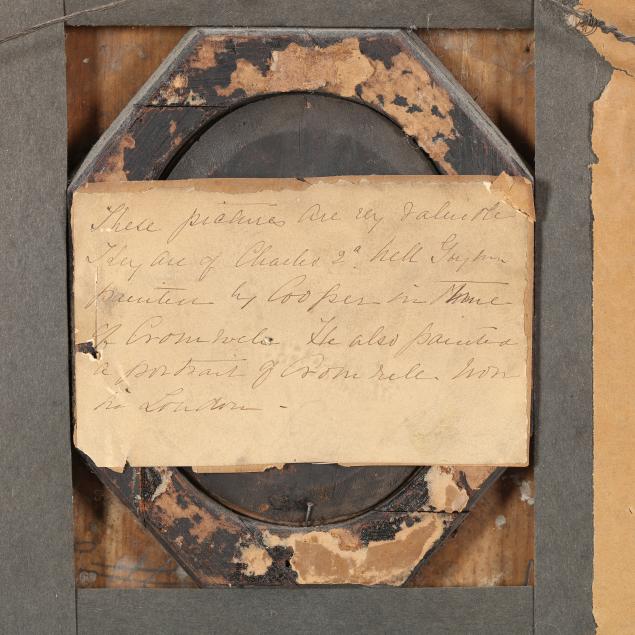 These pictures are vey valuable
They are of Charles 2d. Nell Gwynn
painted by Cooper in time
of Cromwell. He also painted
a portrait of Cromwell. Now
in London -